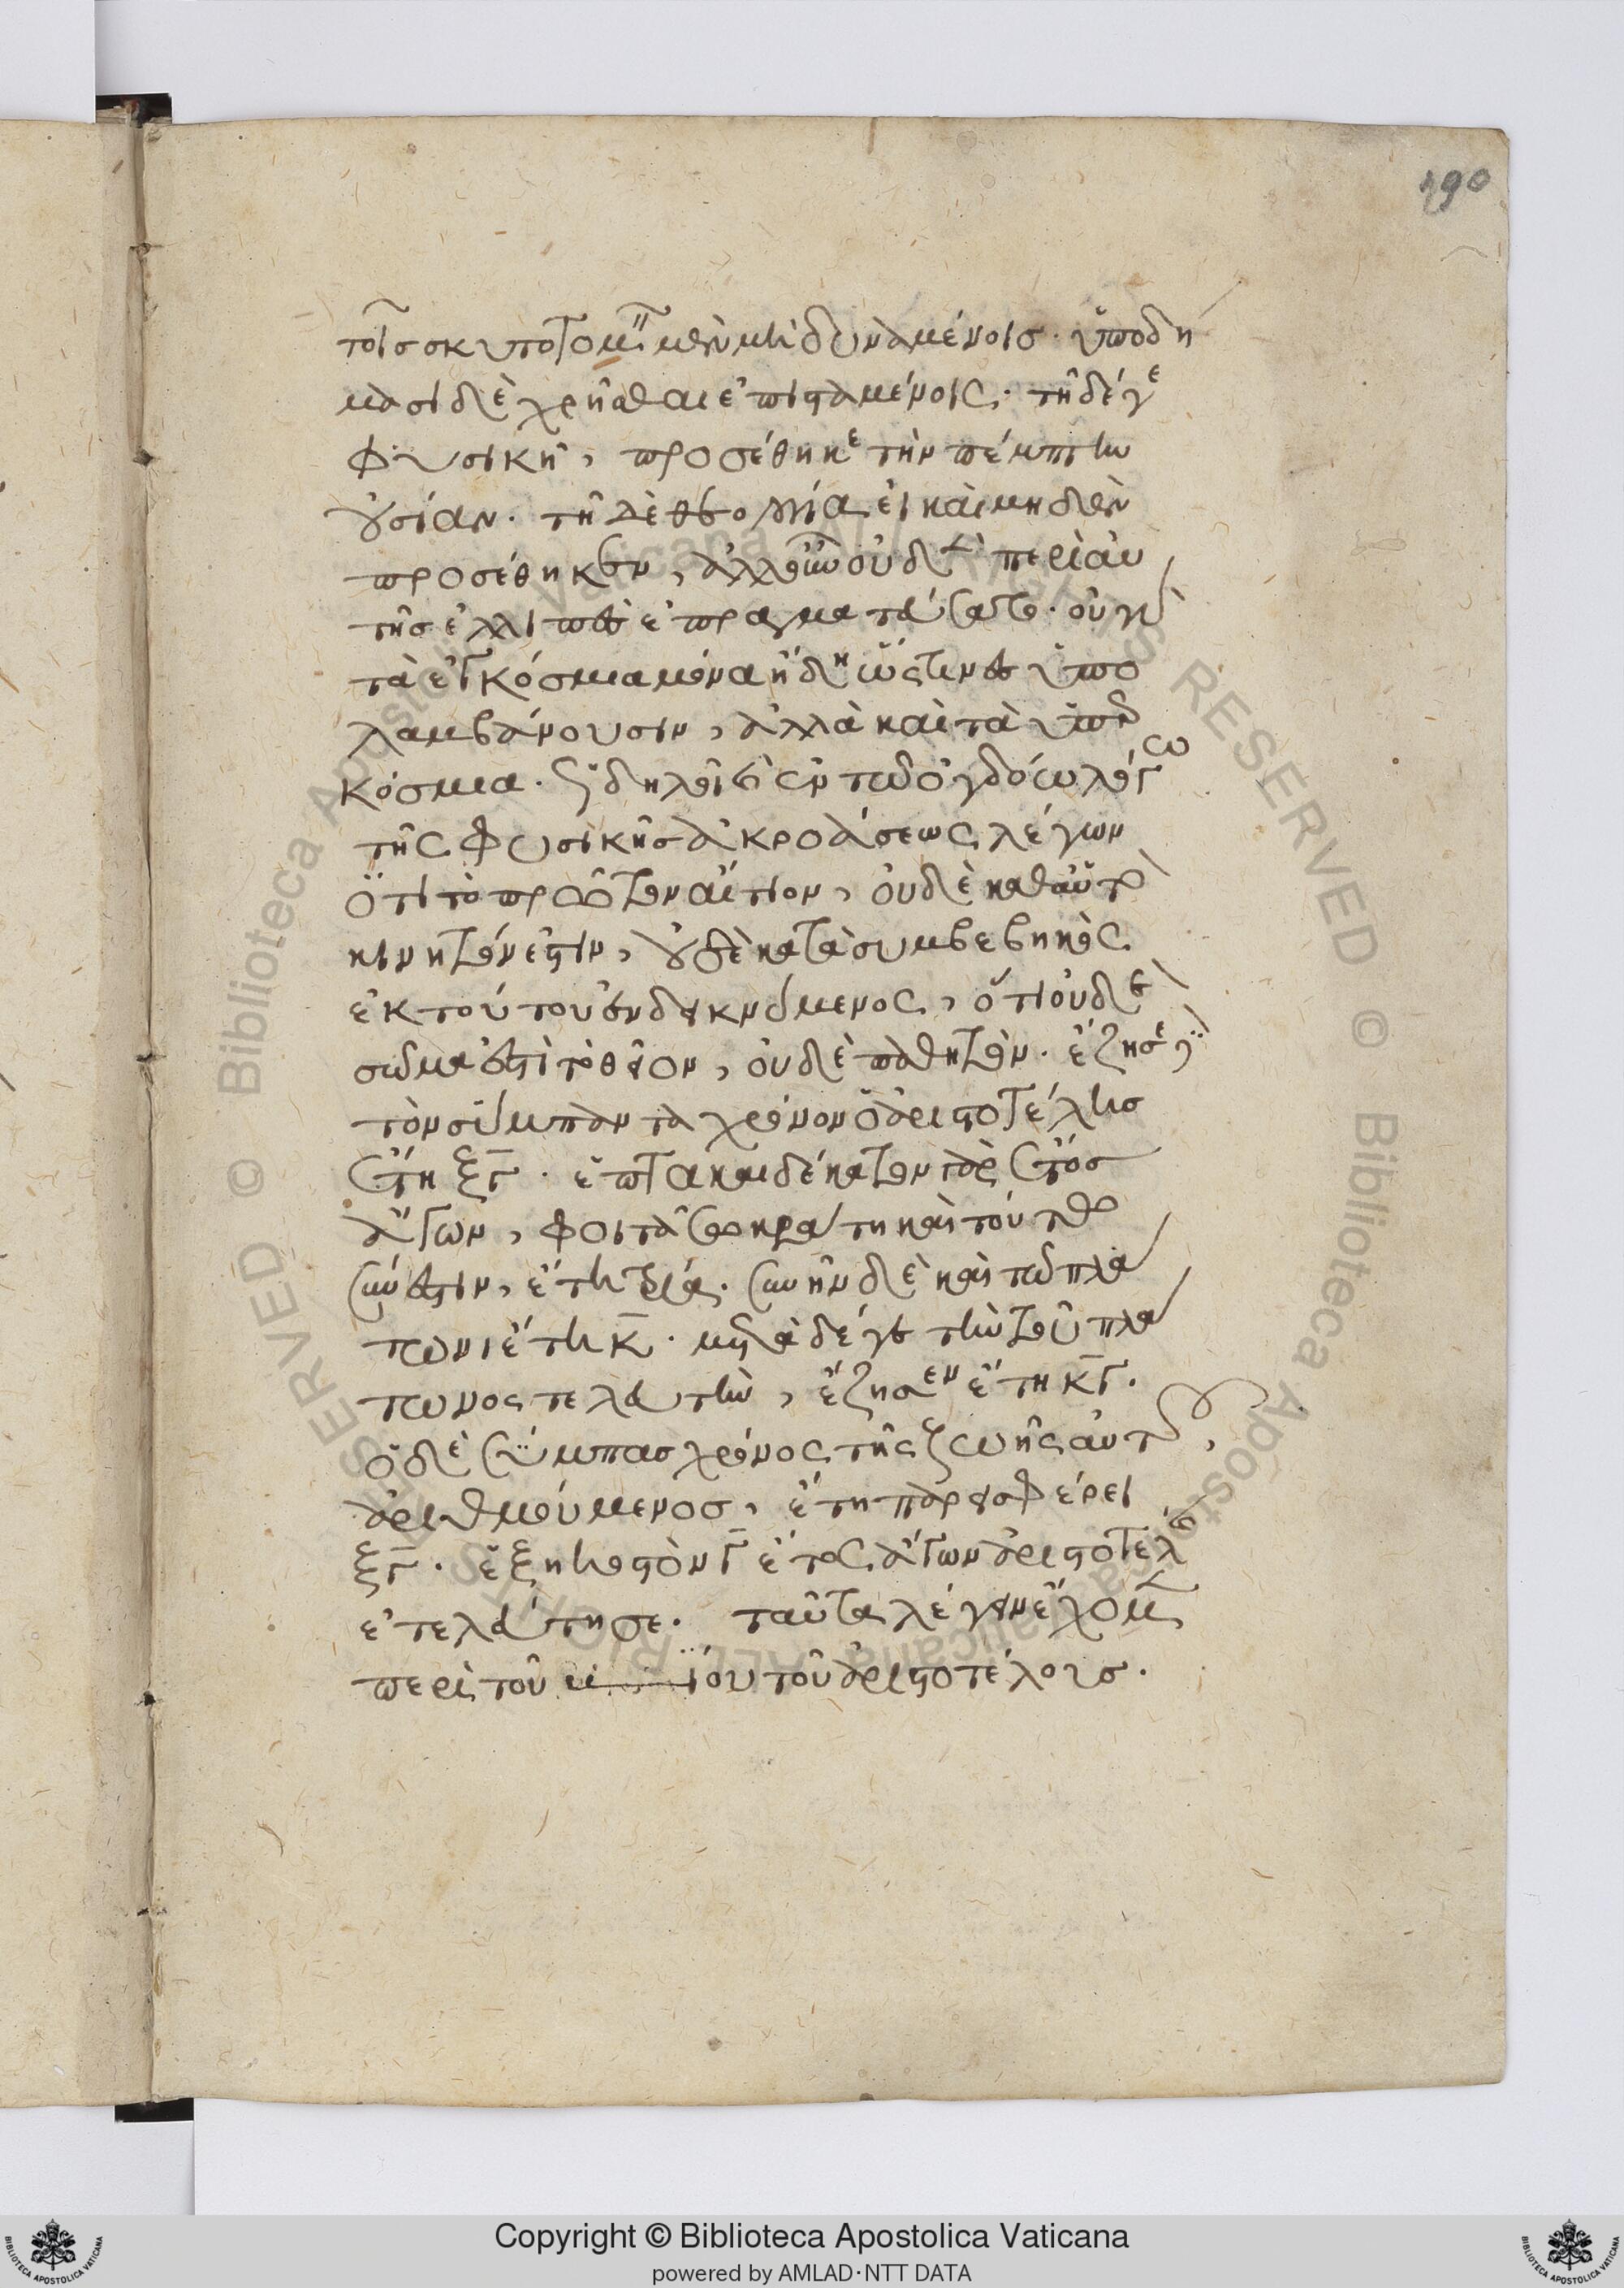 190
τοῖς σκυτοτομεῖν μὲν μὴ δυναμένοις. ὑποδή
μασι δὲ χρῆσθαι ἐπισταμένοις. τῇ δέ γε
φυσικῇ, προσέθηκε τὴν πέμπτην
οὐσίαν. τῇ δὲ θεολογίᾳ εἰ καὶ μηδὲν
προσέθηκεν, ἀλλ' οὖν οὐδὲν περὶ αὐ
τῆς ἐλλιπὲς ἐπραγματεύσατο. οὐ γὰρ
τὰ ἐγκόσμια μόνα ᾔδει ὥς τινες ὑπο
λαμβάνουσιν, ἀλλὰ καὶ τὰ ὑπερ
κόσμια. ὡς δηλοῖ ἐν τῷ ὀγδόῳ λόγω
τῆς φυσικῆς ἀκροάσεως λέγων
ὅτι τὸ πρῶτον αἴτιον, οὐδὲ καθ' αὑτὸ
κινητόν ἐστιν, οὐδὲ κατὰ συμβεβηκὸς
ἐκ τούτου ἐνδεικνύμενος, ὅτι οὐδὲ
σῶμά ἐστι τὸ θεῖον, οὐδὲ παθητόν. ἔζησε
τὸν σύμπαντα χρόνον ὁ ἀριστοτέλης
ἔτη ξγ. ἑπτακαιδέκατον γὰρ ἔτος
ἄγων, φοιτᾷ σωκράτη καὶ τούτῳ
σύνεστιν, ἔτη τρία. συνῆν δὲ καὶ τῷ πλά
τωνι ἔτη κ. μετὰ δέ γε τὴν τοῦ πλά
τωνος τελευτὴν, ἔζησεν ἔτη κγ.
ὁ δὲ σύμπας χρόνος τῆς ζωῆς αὐτοῦ,
ἀριθμούμενος, ἔτη παρεισφέρει
ξγ. ἑξηκοστὸν γ ἔτος ἄγων ἀριστοτέλης
ἐτελεύτησε. ταῦτα λέγειν ἔχομεν
περὶ τοῦ βίου τοῦ ἀριστοτέλους.
Copyright © Biblioteca Apostolica Vaticana
powered by AMLAD·NTT DATA